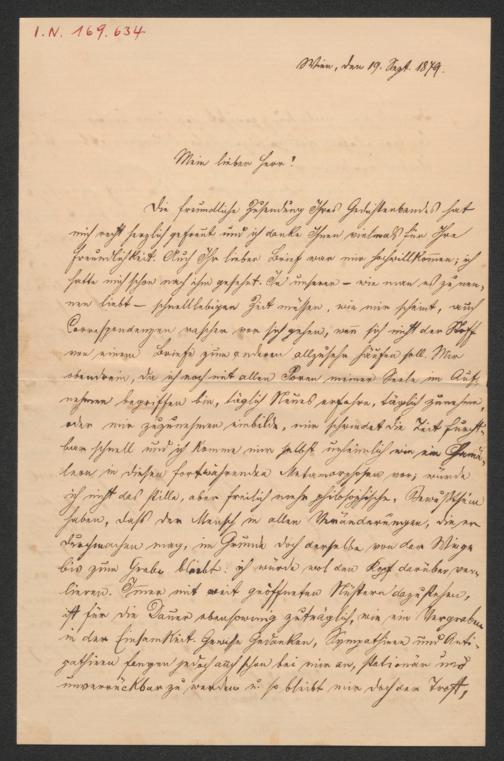 I.N. 169.634
Wien, den 19. Sept. 1879.
Mein lieber Herr!
Die freundliche Zusendung Ihres Gedichtenbandes hat
mich recht herzlich gefreut und ich danke Ihnen vielmals für Ihre
Freundlichkeit. Auch Ihr lieber Brief war mir hochwillkommen; ich
hatte mich schon nach ihm gesehnt. In unserer – wie man es zu nen-
nen liebt – schnelllebigen Zeit müssen, wie mir scheint, auch
Correspondenzen rascher vor sich gehen, wenn sich nicht der Stoff
von einem Briefe zum anderen allzusehr häufen soll. Mir
obendrein, da ich noch mit allen Poren meiner Seele im Auf-
nehmen begriffen bin, täglich Neues erfahre, täglich zunehme,
oder mir zuzunehmen einbilde, mir schwindet die Zeit furcht-
bar schnell und ich komme mir selbst unheimlich wie ein Chamä-
leon in diesen fortwährenden Metamorphosen vor; würde
ich nicht das stille, aber freilich mehr philosophische, Bewußtsein
haben, daß der Mensch in allen Veränderungen, die er
durchmachen mag, im Grunde doch derselbe von der Wiege
bis zum Grabe bleibt: ich würde wol den Kopf darüber ver-
lieren. Immer mit weit geöffneten Nüstern dazustehen,
ist für die Dauer ebensowenig zuträglich, wie ein Vergraben
in der Einsamkeit. Gewisse Gedanken, Sympathieen und Anti-
pathieen fangen jedoch auch schon bei mir an, stationär und
unverrückbar zu werden u. so bleibt mir doch der Trost,